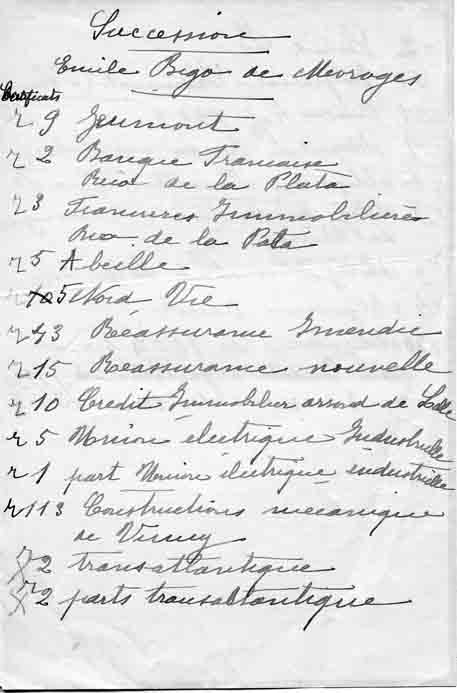 Succession
Emile Bigo de Meuroges
Certificats
r 9 Jeumont
r 2 Banque Francaise
Rio de la Plata
r 3 Financieres Immobilières
Rio de la Plata
r 5 Abeille
5 Nord Vie
r 3 Réassurance Incendie
r 15 Réassurance nouvelle
r 10 Crédit Immobilier arrond de Lille
r 5 Union électrique Industrielle
r 1 part Union électrique industrielle
r 113 Constructions mécanique
de
r 2 transatlantique
r 2 parts transatlantique